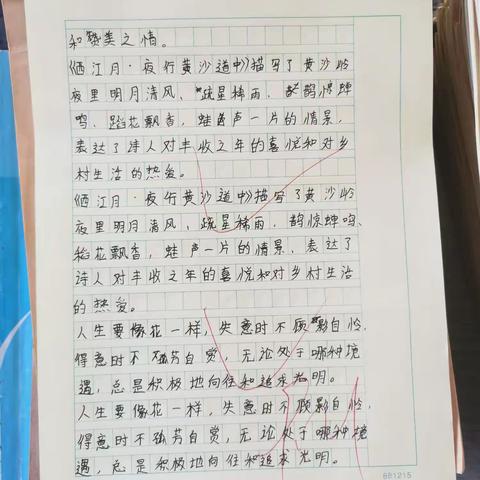 和赞美之情。
《西江月·夜行黄沙道中》描写了黄沙岭
夜里明月清风、疏星稀雨、鹊惊蝉
鸣、稻花飘香,蛙声一片的情景,
表达了诗人对丰收之年的喜悦和对乡
村生活的热爱。
《西江月·夜行黄沙道中》描写了黄沙岭
夜里明月清风、疏星稀雨、鹊惊蝉鸣、
稻花飘香、蛙声一片的情景、表达了
诗人对丰收之年的喜悦和对乡村生活
的热爱。
人生要像花一样,失意时不顾影自怜,
得意时不孤芳自赏,无论处于哪种境
遇,总是积极地向往和追求光明。
人生要像花一样,失意时不顾影自怜,
得意时不孤芳自赏,无论处于哪种境
遇,总是积极地向往和追求光明。
681215